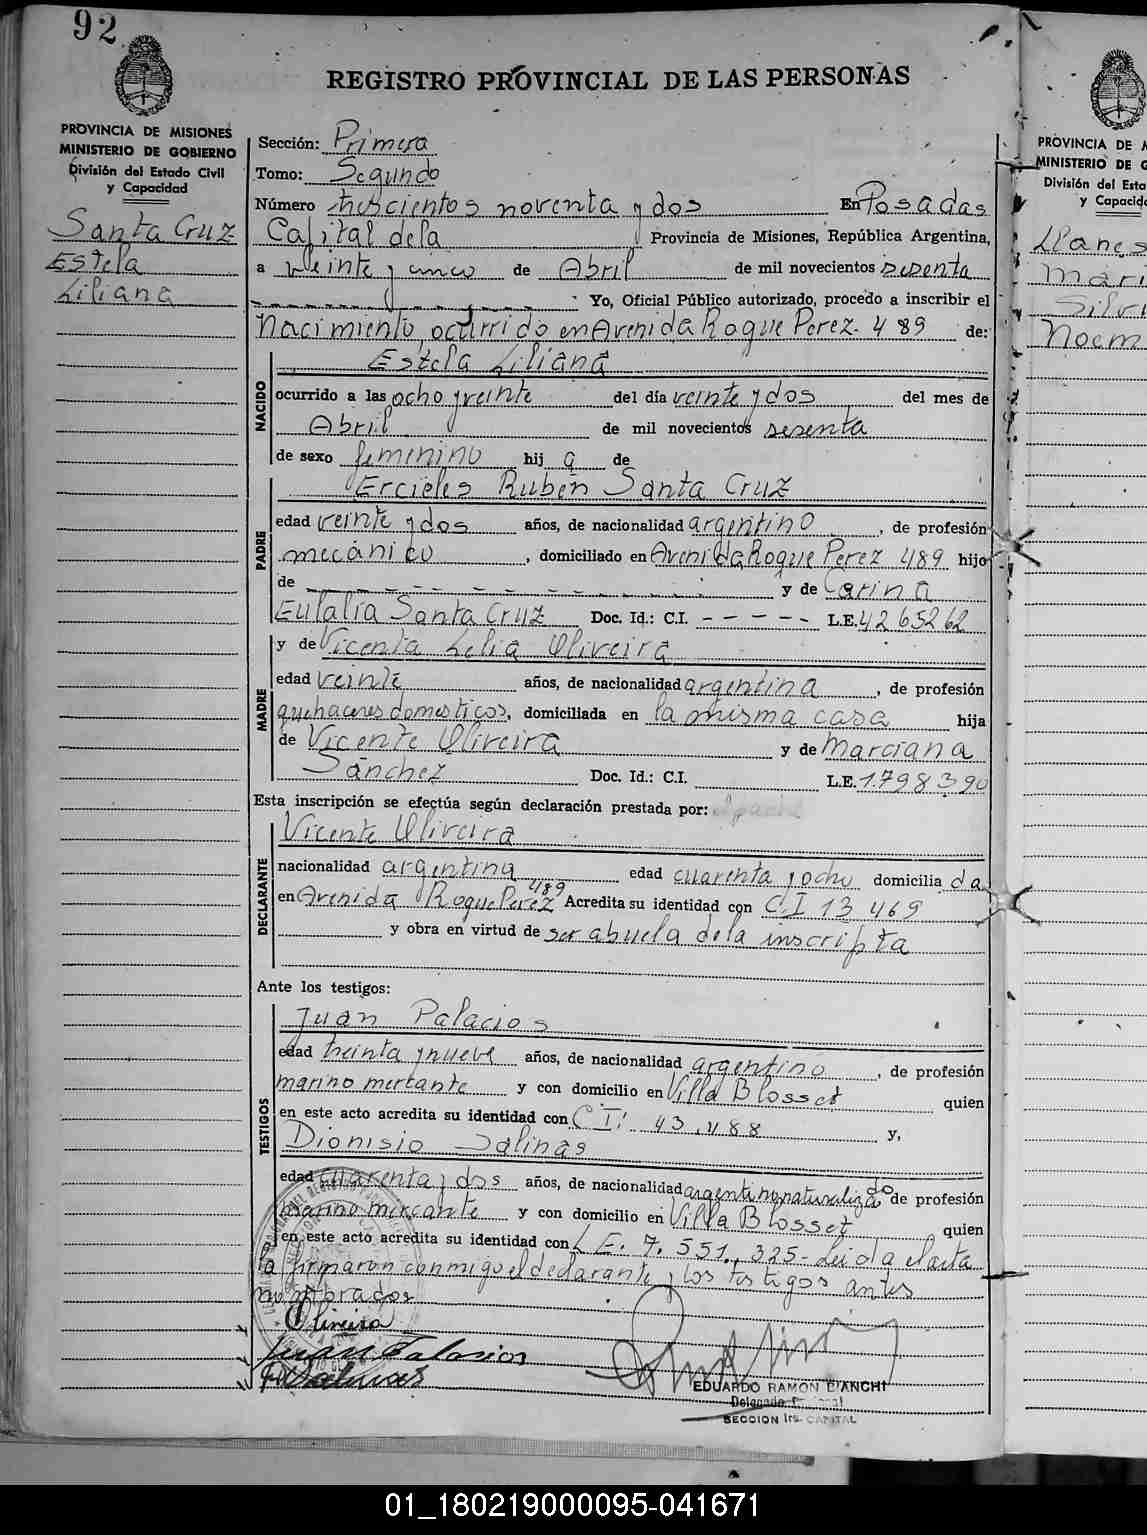 92
REGISTRO PROVINCIAL DE LAS PERSONAS
PROVINCIA DE MISIONES
MINISTERIO DE GOBIERNO
División del Estado Civil
y Capacidad
Santa Cruz
Estela
Liliana
Sección: Primera
Tomo: Segundo
Número trescientos noventa y dos En Posadas
Capital dela Provincia de Misiones, República Argentina,
a veinte y cinco de Abril de mil novecientos sesenta
Yo, Oficial Público autorizado, procedo a inscribir el
Nacimiento, ocurrido en Avenida Roque Perez. 489 de:
NACIDO
Estela Liliana
ocurrido a las ocho y veinte del día veinte y dos del mes de
Abril de mil novecientos sesenta
de sexo femenino hij a de
PADRE
Ercieles Rubén Santa Cruz
edad veinte y dos años, de nacionalidad argentino, de profesión
mecánico, domiciliado en Avenida Roque Perez 489 hijo
de - - - - - - - - - - y de Carina
Eulalia Santa Cruz Doc. Id.: C.I. - - - - - L.E. 4265262
y de Vicenta Lelia Oliveira
MADRE
edad veinte años, de nacionalidad argentina, de profesión
quehaceres domesticos, domiciliada en la misma casa hija
de Vicente Oliveira y de Marciana
Sánchez Doc. Id.: C.I. L.E. 1.798390
Esta inscripción se efectúa según declaración prestada por:
DECLARANTE
Vicente Oliveira
nacionalidad argentina edad cuarenta y ocho domicilia da
en Avenida Roque Perez 489 Acredita su identidad con C.I 13469
y obra en virtud de ser abuela dela inscripta
Ante los testigos:
TESTIGOS
Juan Palacios
edad treinta y nueve años, de nacionalidad argentino, de profesión
marino mercante y con domicilio en Villa Blosset quien
en este acto acredita su identidad con C I: 43.488 y,
Dionisio Salinas
edad cuarenta y dos años, de nacionalidad argentino naturalizado de profesión
marino mercante y con domicilio en Villa Blosset quien
en este acto acredita su identidad con L E. 7.551.325- Leida el acta
la firmaron conmigo el declarante y los testigos antes
nombrados
Oliveira
Juan Palacios
EDUARDO RAMON BIANCHI
SECCION 1ra. CAPITAL
PROVINCIA DE
MINISTERIO DE
División del Esta
y Capacid
Llanes
Mari
Silvi
Noem
01_180219000095-041671